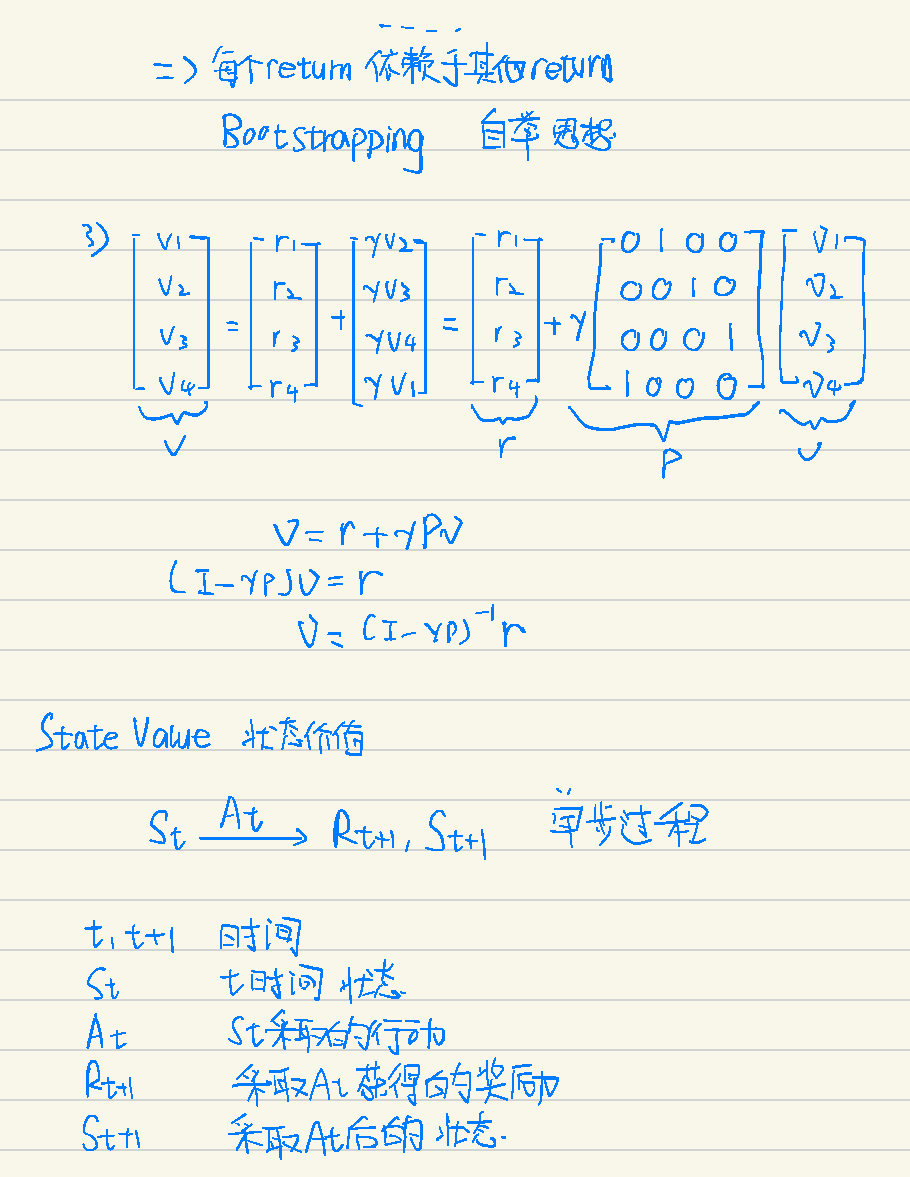 => 每个return 依赖于其他return
Bootstrapping 自举思想
3) [v1 v2 v3 v4] = [r1 r2 r3 r4] + [γv2 γv3 γv4 γv1] = [r1 r2 r3 r4] + γ [0 1 0 0; 0 0 1 0; 0 0 0 1; 1 0 0 0] [v1 v2 v3 v4]
v r P v
v = r + γPv
(I-γP)v = r
v = (I-γP)⁻¹ r
State Value 状态价值
St —At→ Rt+1, St+1 单步过程
t, t+1 时间
St t时间状态
At St采取的行动
Rt+1 采取At获得的奖励
St+1 采取At后的状态.